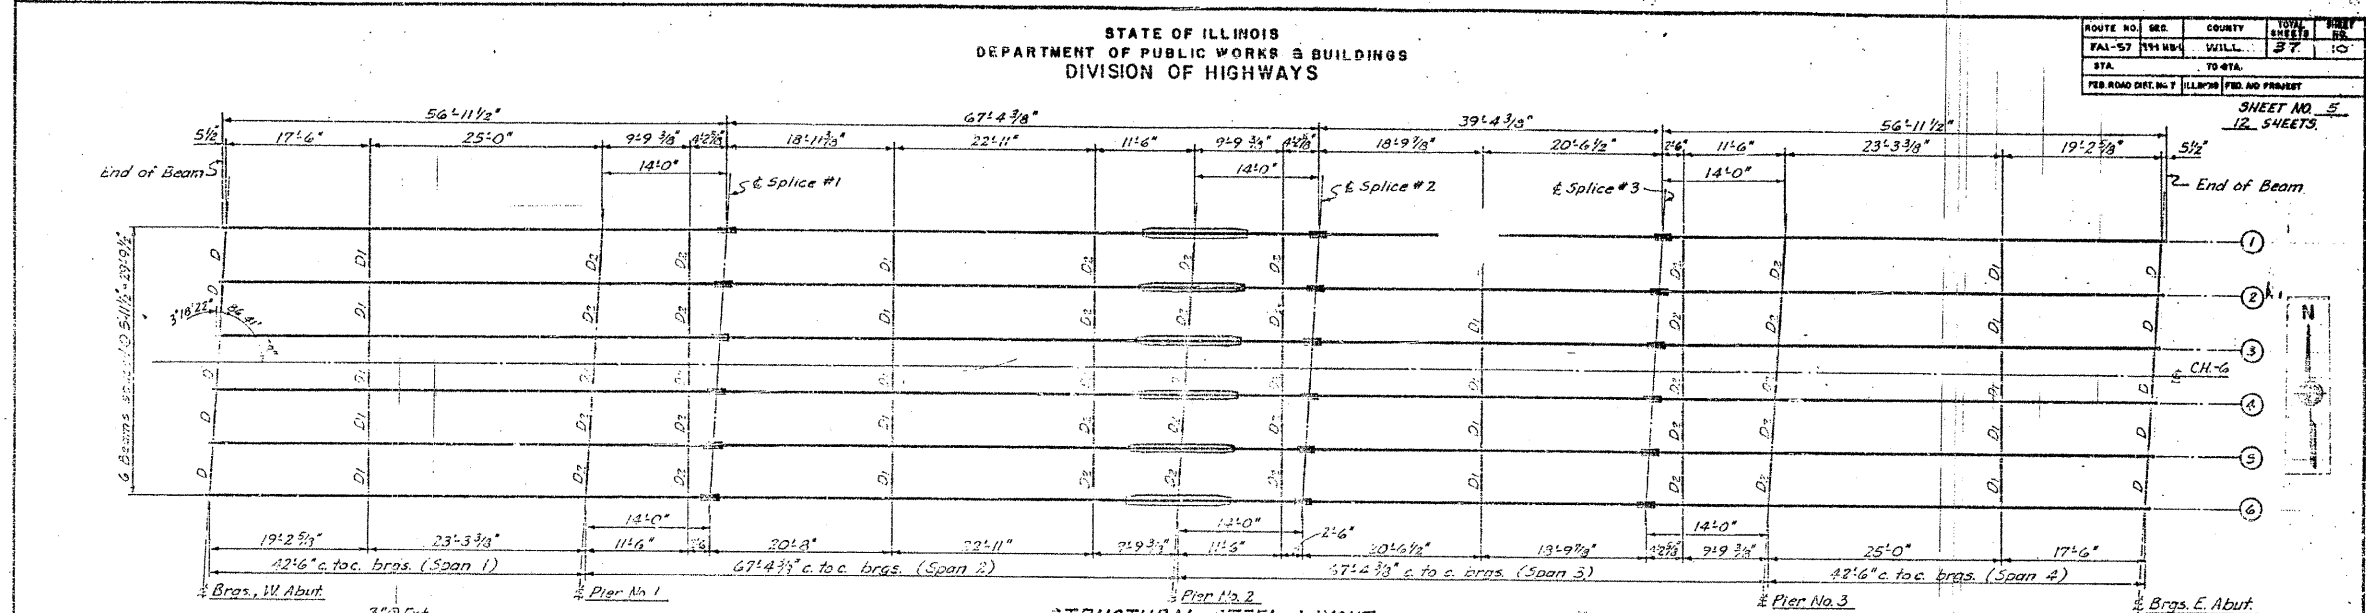 STATE OF ILLINOIS
DEPARTMENT OF PUBLIC WORKS & BUILDINGS
DIVISION OF HIGHWAYS
ROUTE NO. SEC. COUNTY TOTAL SHEETS SHEET NO.
FAI-57 WILL 37 10
STA. TO STA.
FED. ROAD DIST. NO. 7 ILLINOIS FED. AID PROJECT
SHEET NO. 5
12 SHEETS.
56'-11 1/2" 67'-4 3/8" 39'-4 3/8" 56'-11 1/2"
5 1/2" 17'-6" 25'-0" 9'-9 3/8" 4'-2 5/8" 18'-11 3/8" 22'-11" 11'-6" 9'-9 3/8" 4'-2 5/8" 18'-9 7/8" 20'-6 1/2" 2'-6" 11'-6" 23'-3 3/8" 19'-2 5/8" 5 1/2"
14'-0" 14'-0" 14'-0"
End of Beam ℄ Splice #1 ℄ Splice #2 ℄ Splice #3 End of Beam
1
D D1 D2 D2 D1 D2 D2 D2 D2 D2 D1 D
2
D D1 D2 D2 D1 D2 D2 D2 D1 D2 D2 D1 D
3°18'22" 86°41'
6 Beams 5'-11 1/2" = 29'-9 1/2"
3
N
℄ C.H.-6
D D1 D2 D2 D1 D2 D2 D2 D1 D2 D2 D1 D
4
D D1 D2 D2 D1 D2 D2 D2 D1 D2 D2 D1 D
5
D D1 D2 D2 D1 D2 D2 D2 D1 D2 D2 D1 D
6
14'-0" 14'-0" 2'-6" 14'-0"
19'-2 5/8" 23'-3 3/8" 11'-6" 2'-6" 20'-8" 22'-11" 9'-9 3/8" 11'-6" 20'-6 1/2" 18'-9 7/8" 4'-2 5/8" 9'-9 3/8" 25'-0" 17'-6"
42'-6" c. to c. brgs. (Span 1) 67'-4 3/8" c. to c. brgs. (Span 2) 67'-4 3/8" c. to c. brgs. (Span 3) 42'-6" c. to c. brgs. (Span 4)
℄ Brgs., W. Abut. ℄ Pier No. 1 ℄ Pier No. 2 ℄ Pier No. 3 ℄ Brgs. E. Abut.